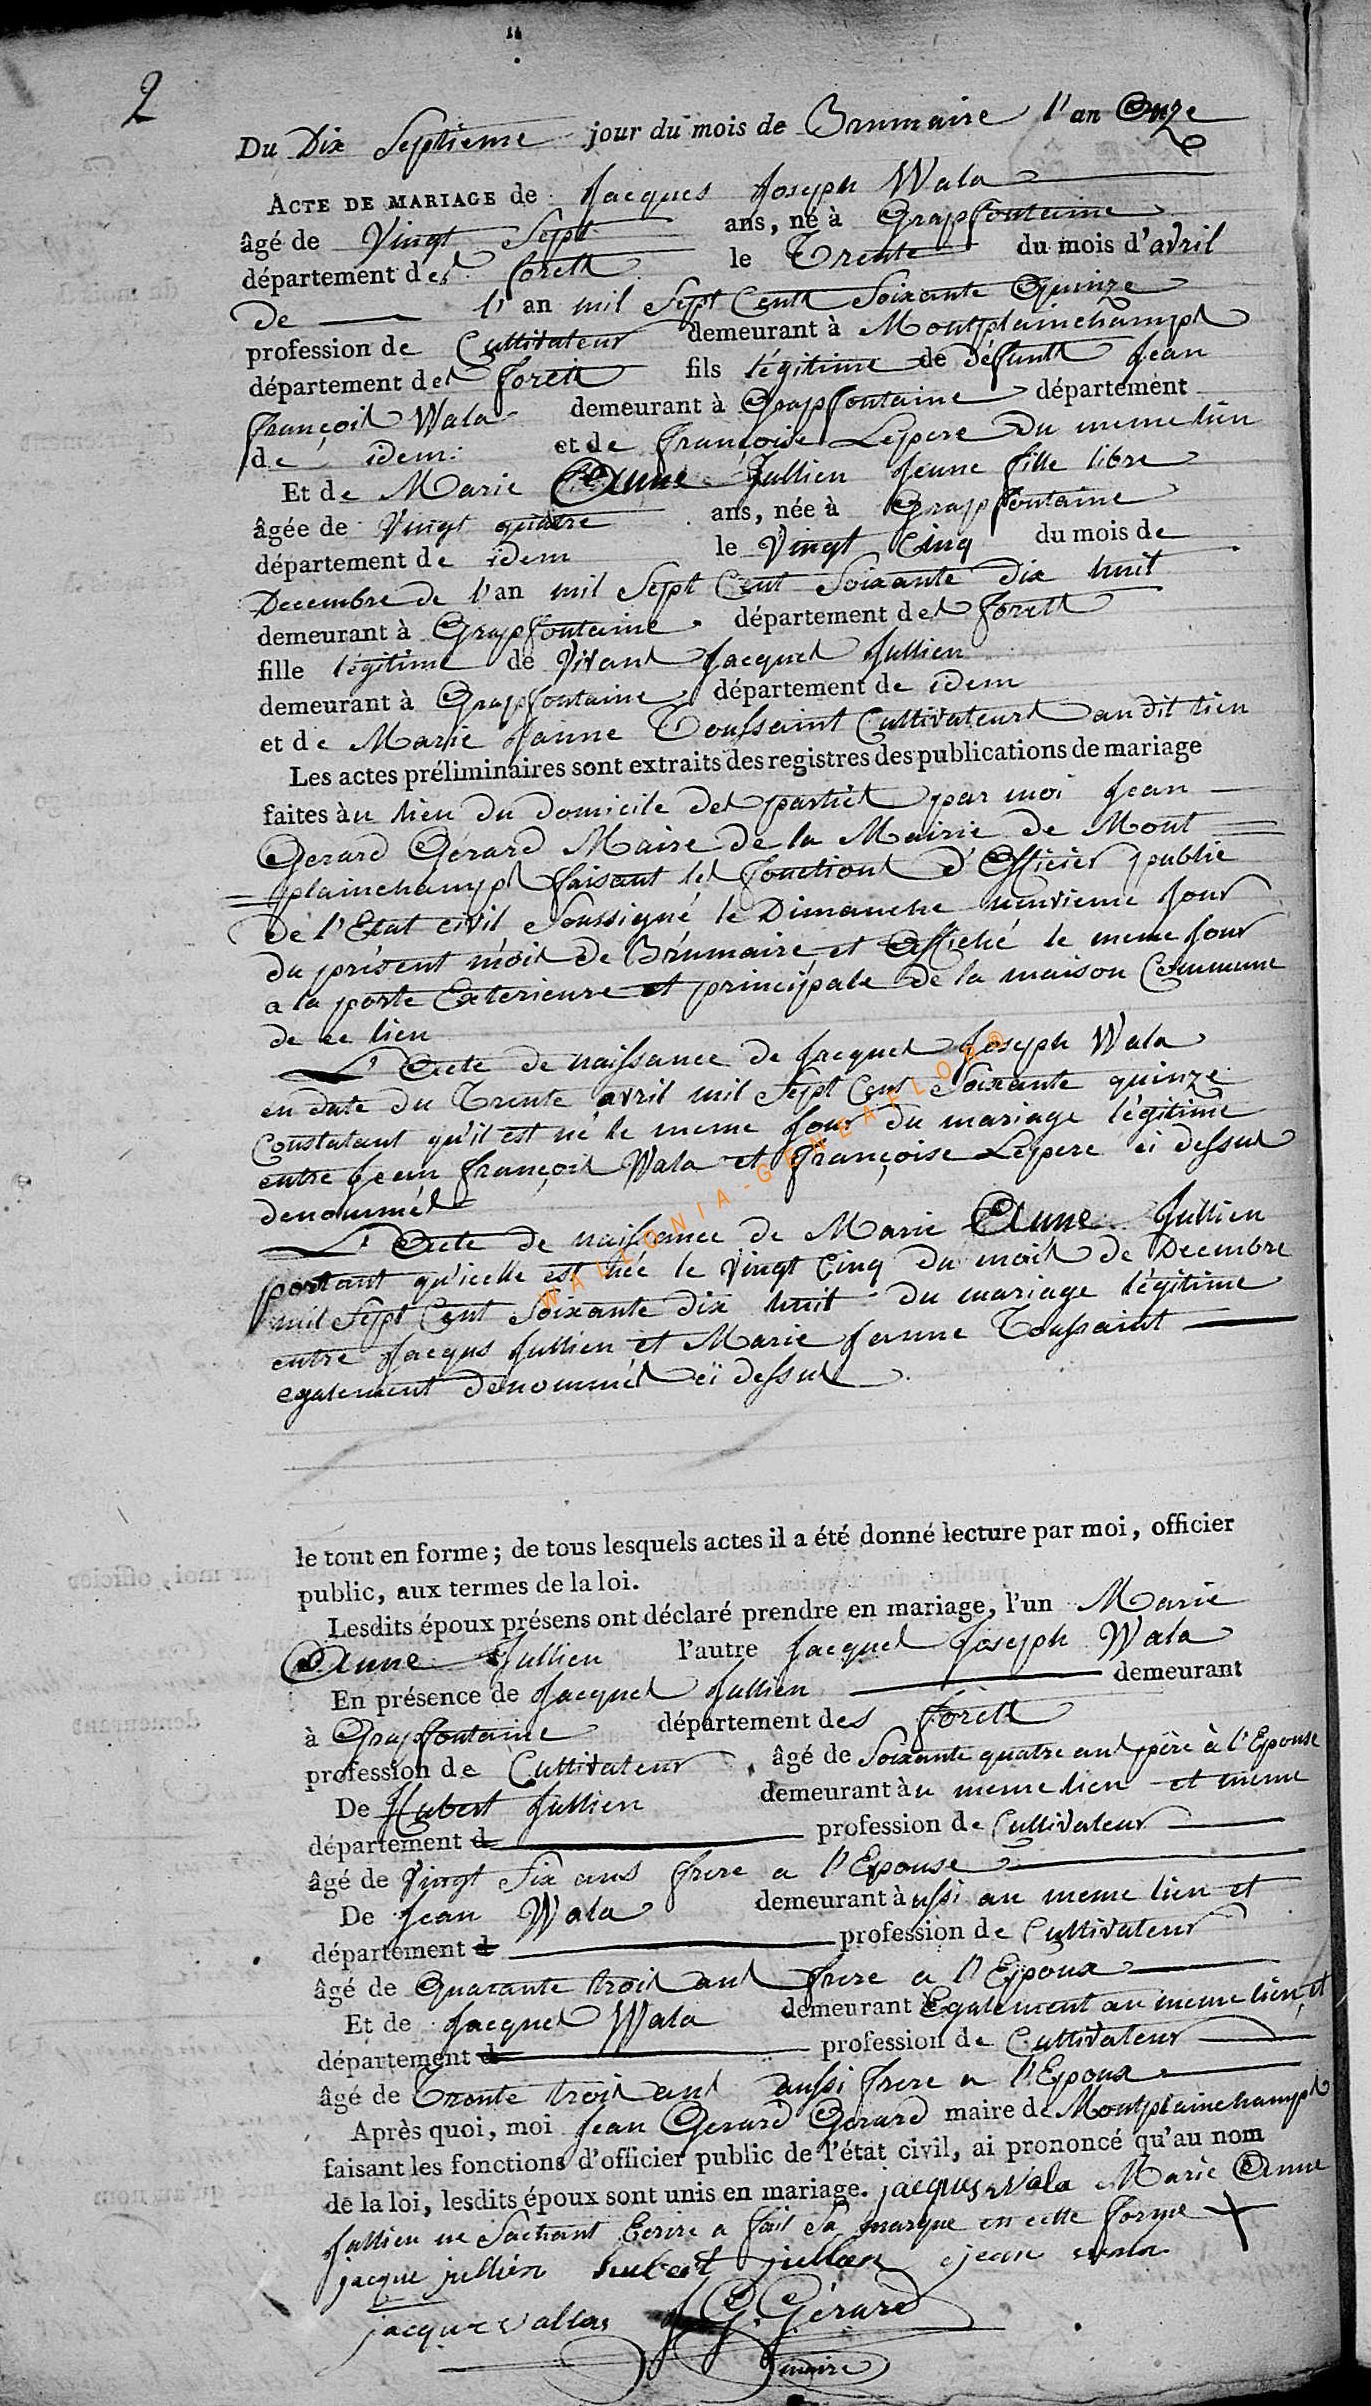 2
Du Dix Septieme jour du mois de Brumaire l'an Onze
ACTE DE MARIAGE de Jacques Joseph Wala
âgé de Vingt Sept ans, né à Grapfontaine
département des forets le Trente du mois d'avril
De l'an mil Sept Cents Soixante Quinze
profession de Cultivateur demeurant à Montplainchamps
département des forets fils légitime de défunts Jean
François Wala demeurant à Grapfontaine département
de idem et de Françoise Lepere Du meme lieu
Et de Marie Anne Jullien Jeune fille libre
âgée de Vingt quatre ans, née à Grapfontaine
département de idem le Vingt Cinq du mois de
Decembre de l'an mil Sept Cent Soixante dix huit
demeurant à Grapfontaine département des forets
fille légitime de Vivant Jacques Jullien
demeurant à Grapfontaine département de idem
et de Marie Janne Toussaint Cultivateurs au dit lieu
Les actes préliminaires sont extraits des registres des publications de mariage
faites àu lieu du domicile des parties par moi Jean
Gerard Gérard Maire de la Mairie de Mont
plainchamps faisant les fonctions d'Officier public
de l'Etat civil Soussigné le Dimanche neuvieme jour
du présent mois de Brumaire et Affiché le meme jour
a la porte Exterieure et principale de la maison Commune
de ce lieu
L'Acte de naissance de Jacques Joseph Wala
en date du Trente avril mil Sept Cent Soixante quinze
Constatant qu'il est né le meme jour du mariage légitime
entre Jean François Wala et Françoise Lepere ci dessus
denommés
L'Acte de naissance de Marie Anne Jullien
portant qu'icelle est née le Vingt Cinq du mois de Decembre
mil Sept Cent Soixante dix huit du mariage légitime
entre Jacques Jullien et Marie Janne Toussaint
egalement denommés ci dessus
WALLONIA-GENEAFLOR®
le tout en forme; de tous lesquels actes il a été donné lecture par moi, officier
public, aux termes de la loi.
Lesdits époux présens ont déclaré prendre en mariage, l'un Marie
Anne Jullien l'autre Jacques Joseph Wala
En présence de Jacques Jullien demeurant
à Grapfontaine département des forets
profession de Cultivateur âgé de Soixante quatre ans père à l'Epouse
De Hubert Jullien demeurant àu meme lieu et meme
département d profession de Cultivateur
âgé de Vingt Six ans frere a l'Epouse
De Jean Wala demeurant àussi au meme lieu et
département d profession de Cultivateur
âgé de Quarante trois ans frere a l'Epoux
Et de Jacques Wala demeurant Egalement au meme lieu et
département d profession de Cultivateur
âgé de Trente trois ans aussi frere a l'Epoux
Après quoi, moi Jean Gerard Gerard maire de Montplainchamps
faisant les fonctions d'officier public de l'état civil, ai prononcé qu'au nom
de la loi, lesdits époux sont unis en mariage. jacques wala Marie Anne
Jullien ne Sachant Ecrire a fait Sa marque en cette forme +
jacque jullien hubert jullien jean wala
jacque vallas J G. Gérard
maire